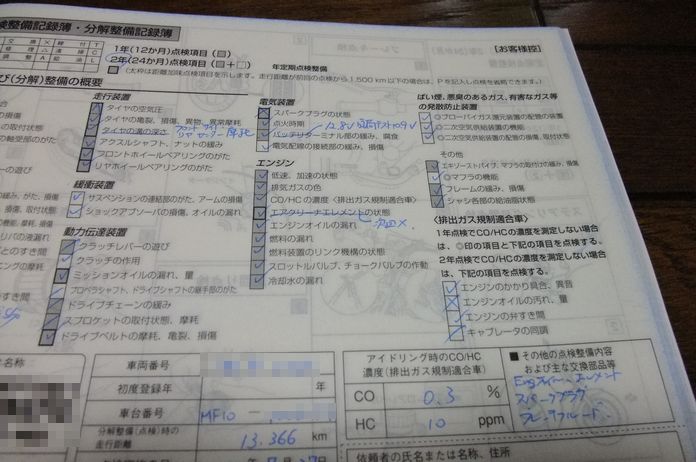 検整備記録簿・分解整備記録簿
【お客様控】
1年(12か月)点検項目(□)
2年(24か月)点検項目(□+□)
年定期点検整備
(太枠は距離加味点検項目を示します。走行距離が前回の点検から1,500km以下の場合は、Pを記入し点検を省略できます。)
び(分解)整備の概要
走行装置
タイヤの空気圧
タイヤの亀裂、損傷、異物、異常摩耗
タイヤの溝の深さ
アクスルシャフト、ナットの緩み
フロントホイールベアリングのがた
リヤホイールベアリングのがた
緩衝装置
サスペンションの連結部のがた、アームの損傷
ショックアブソーバの損傷、オイルの漏れ
動力伝達装置
クラッチレバーの遊び
クラッチの作用
ミッションオイルの漏れ、量
プロペラシャフト、ドライブシャフトの継手部のがた
ドライブチェーンの緩み
スプロケットの取付状態、摩耗
ドライブベルトの摩耗、亀裂、損傷
電気装置
スパークプラグの状態
点火時期
バッテリターミナル部の緩み、腐食
12.8V
電気配線の接続部の緩み、損傷
エンジン
低速、加速の状態
排気ガスの色
CO/HCの濃度〈排出ガス規制適合車〉
エアクリーナエレメントの状態
エンジンオイルの漏れ
次回×
燃料の漏れ
燃料装置のリンク機構の状態
スロットルバルブ、チョークバルブの作動
冷却水の漏れ
ばい煙、悪臭のあるガス、有害なガス等
の発散防止装置
◎ブローバイガス還元装置の配管の装置
◎二次空気供給装置の機能
◎二次空気供給装置の配管の損傷、取付状態
その他
エキゾーストパイプ、マフラの取付けの緩み、損傷
◎マフラの機能
フレームの緩み、損傷
シャシ各部の給油脂状態
〈排出ガス規制適合車〉
1年点検でCO/HCの濃度を測定しない場合
は、◎印の項目と下記の項目を点検する。
2年点検でCO/HCの濃度を測定しない場合
は、下記の項目を点検する。
エンジンのかかり具合、異音
エンジンオイルの汚れ、量
エンジンの弁すき間
キャブレータの同調
車両番号
初度登録年
年
車台番号
MF10 ―
分解整備(点検)時の
走行距離
13,366 km
アイドリング時のCO/HC
濃度(排出ガス規制適合車)
CO 0.3 %
HC 10 ppm
■その他の点検整備内容
および主な交換部品等
スパークプラグ
ブレーキフルード
依頼者の氏名または名称、住所